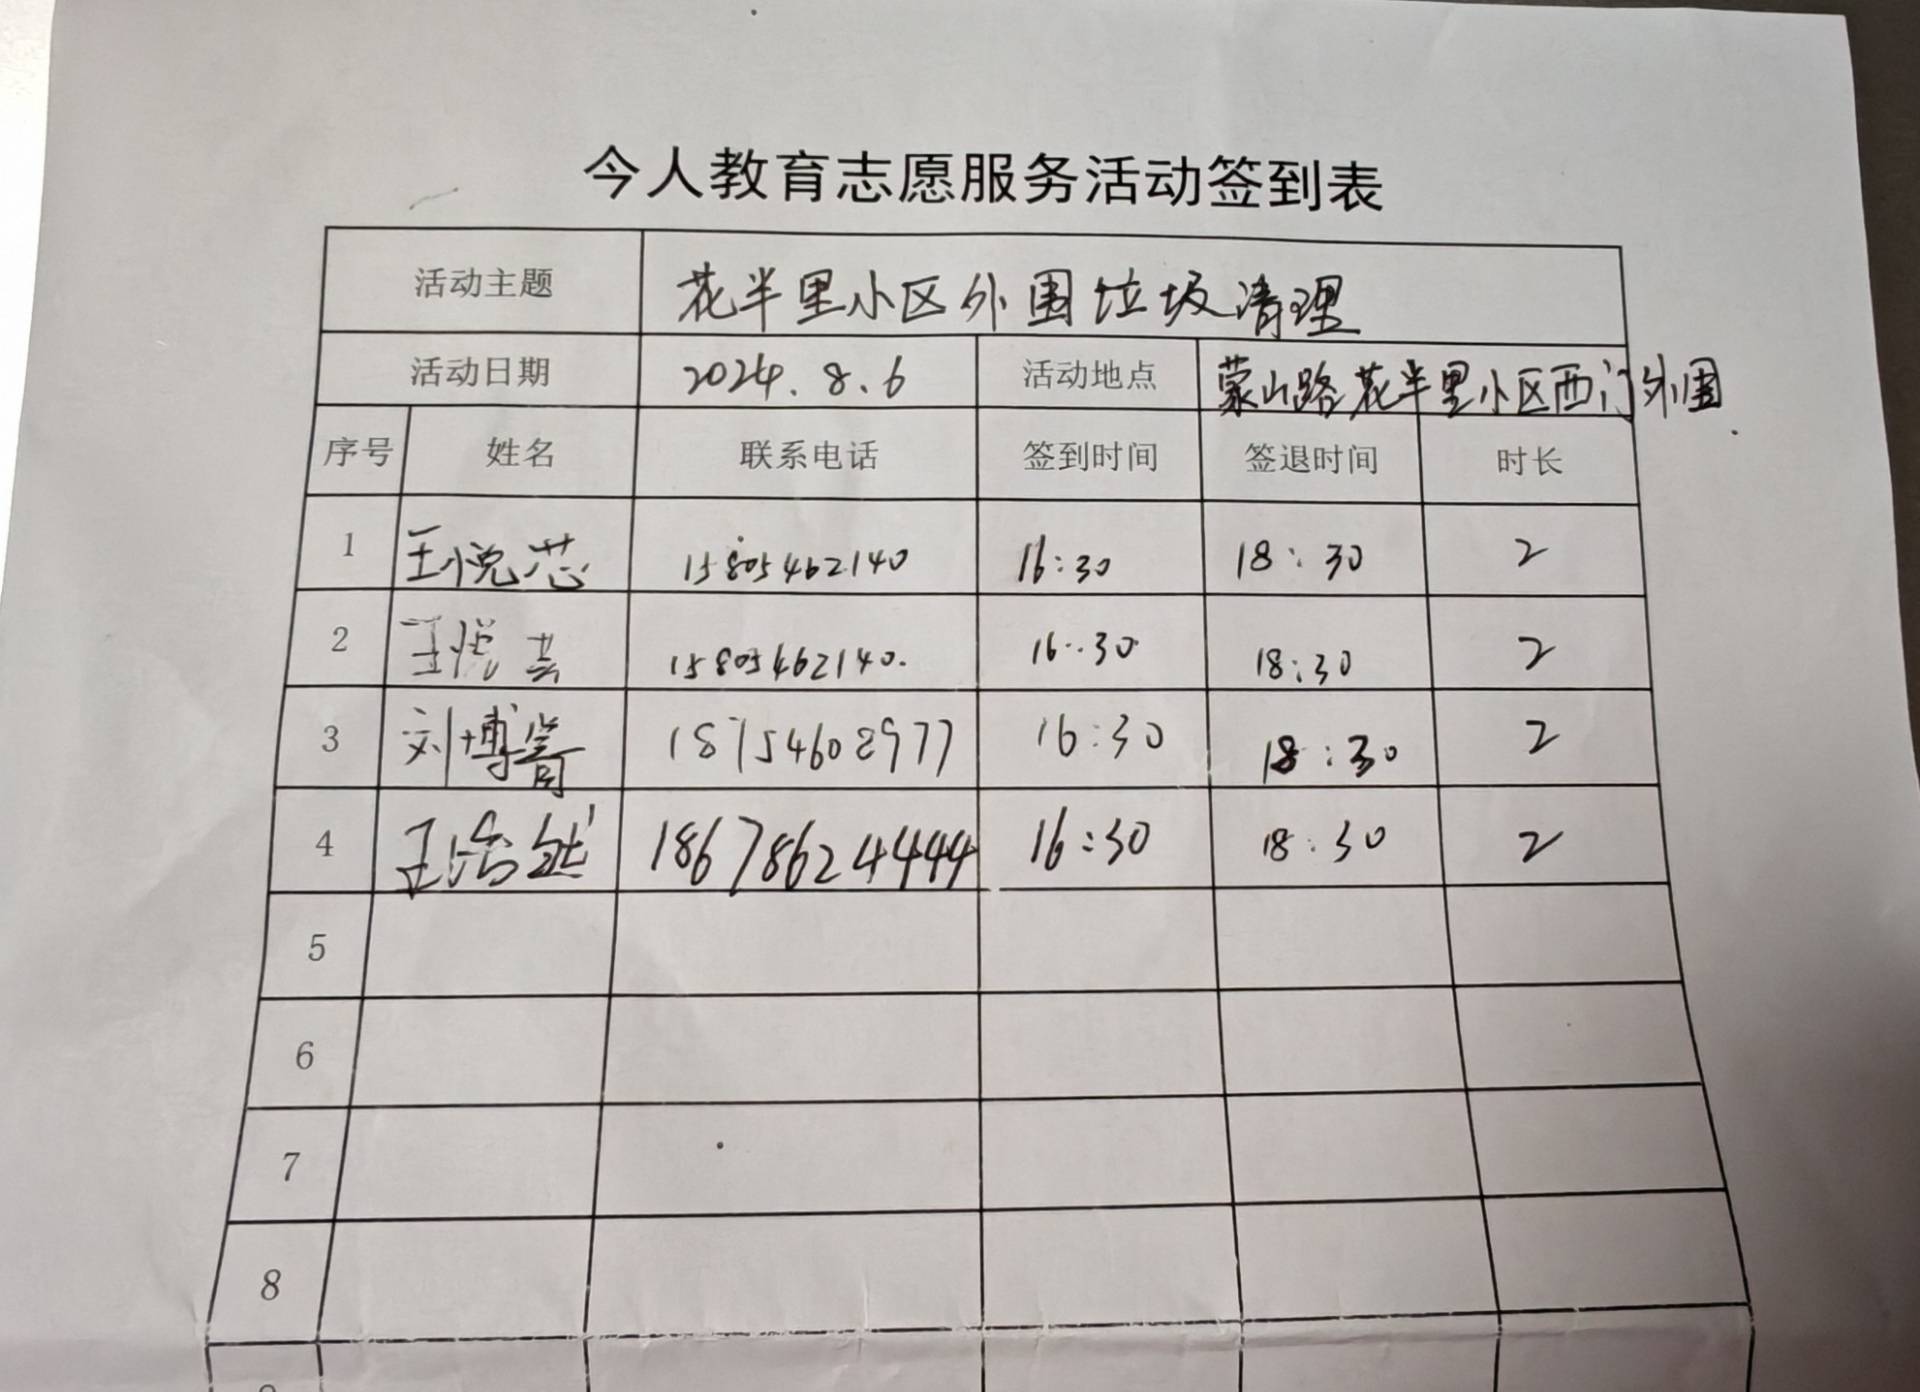 今人教育志愿服务活动签到表
活动主题 花半里小区外围垃圾清理
活动日期 2024.8.6 活动地点 蒙山路花半里小区西门外围
序号 姓名 联系电话 签到时间 签退时间 时长
1 王悦芯 15805462140 16:30 18:30 2
2 王悦 15805462140. 16:30 18:30 2
3 刘博 18754602977 16:30 18:30 2
4 王浩然 18678624444 16:30 18:30 2
5
6
7
8